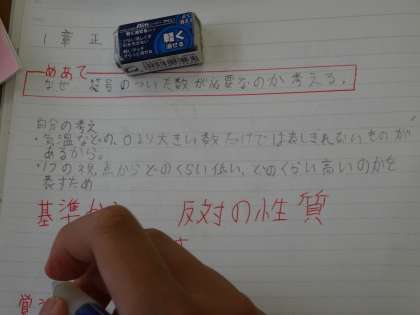 1章 正
軽く
消せる
めあて
なぜ 符号のついた数が必要なのか考える。
自分の考え
・気温などの、0より大きい数だけでは表しきれないものが
あるから。
・1つの視点からどのくらい低い、どのくらい高いのかを
表すため
基準か 反対の性質
覚